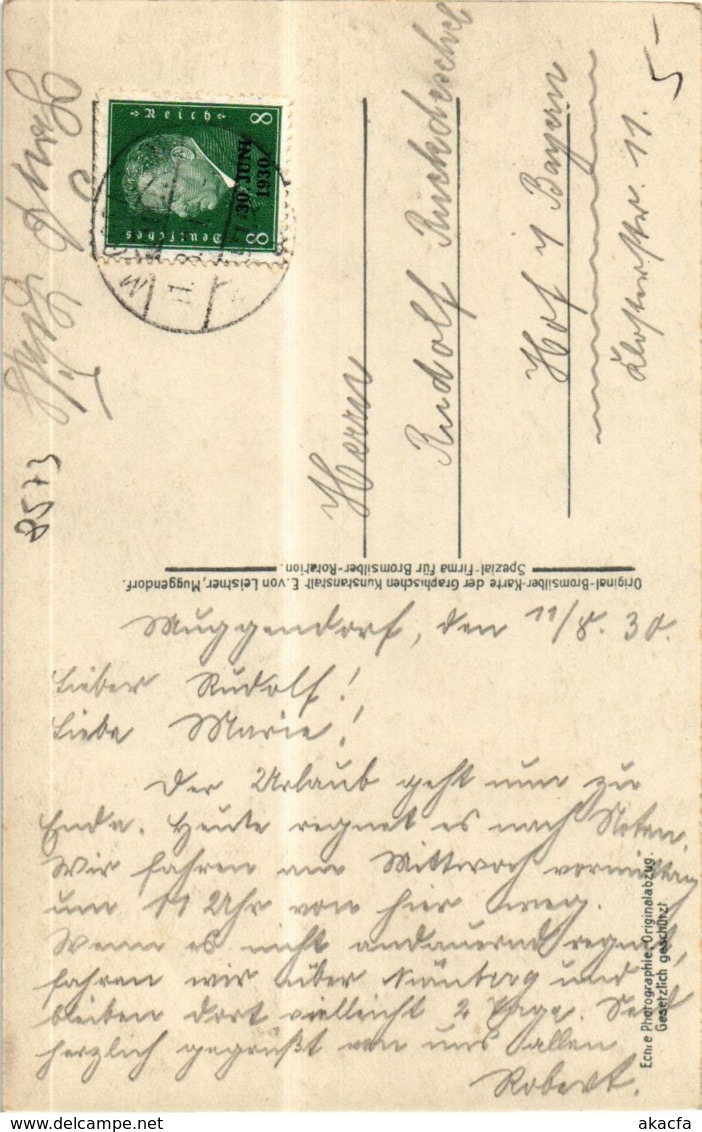 Muggendorf, den 11/8. 30.
Lieber Rudolf!
Liebe Marie!
Der Urlaub geht nun zu
Ende. Heute regnet es nach Noten.
Wir fahren am Mittwoch vormittag
um 11 Uhr von hier weg.
Wenn es nicht andauernd regnet,
fahren wir über Nürnberg und
bleiben dort vielleicht 2 Tage. Seid
herzlich gegrüßt von uns allen
Robert.
Herrn
Rudolf Ruckdeschel
Hof i/ Bayern
Klosterstr. 11.
5-
8573
Deutsches Reich
8 8
30. JUNI
1930
Original-Bromsilber-Karte der Graphischen Kunstanstalt E. von Leistner, Muggendorf.
Spezial-Firma für Bromsilber-Rotation.
Echte Photographie. Originalabzug.
Gesetzlich geschützt
akpool.co.uk
delcampe.net
akacfa